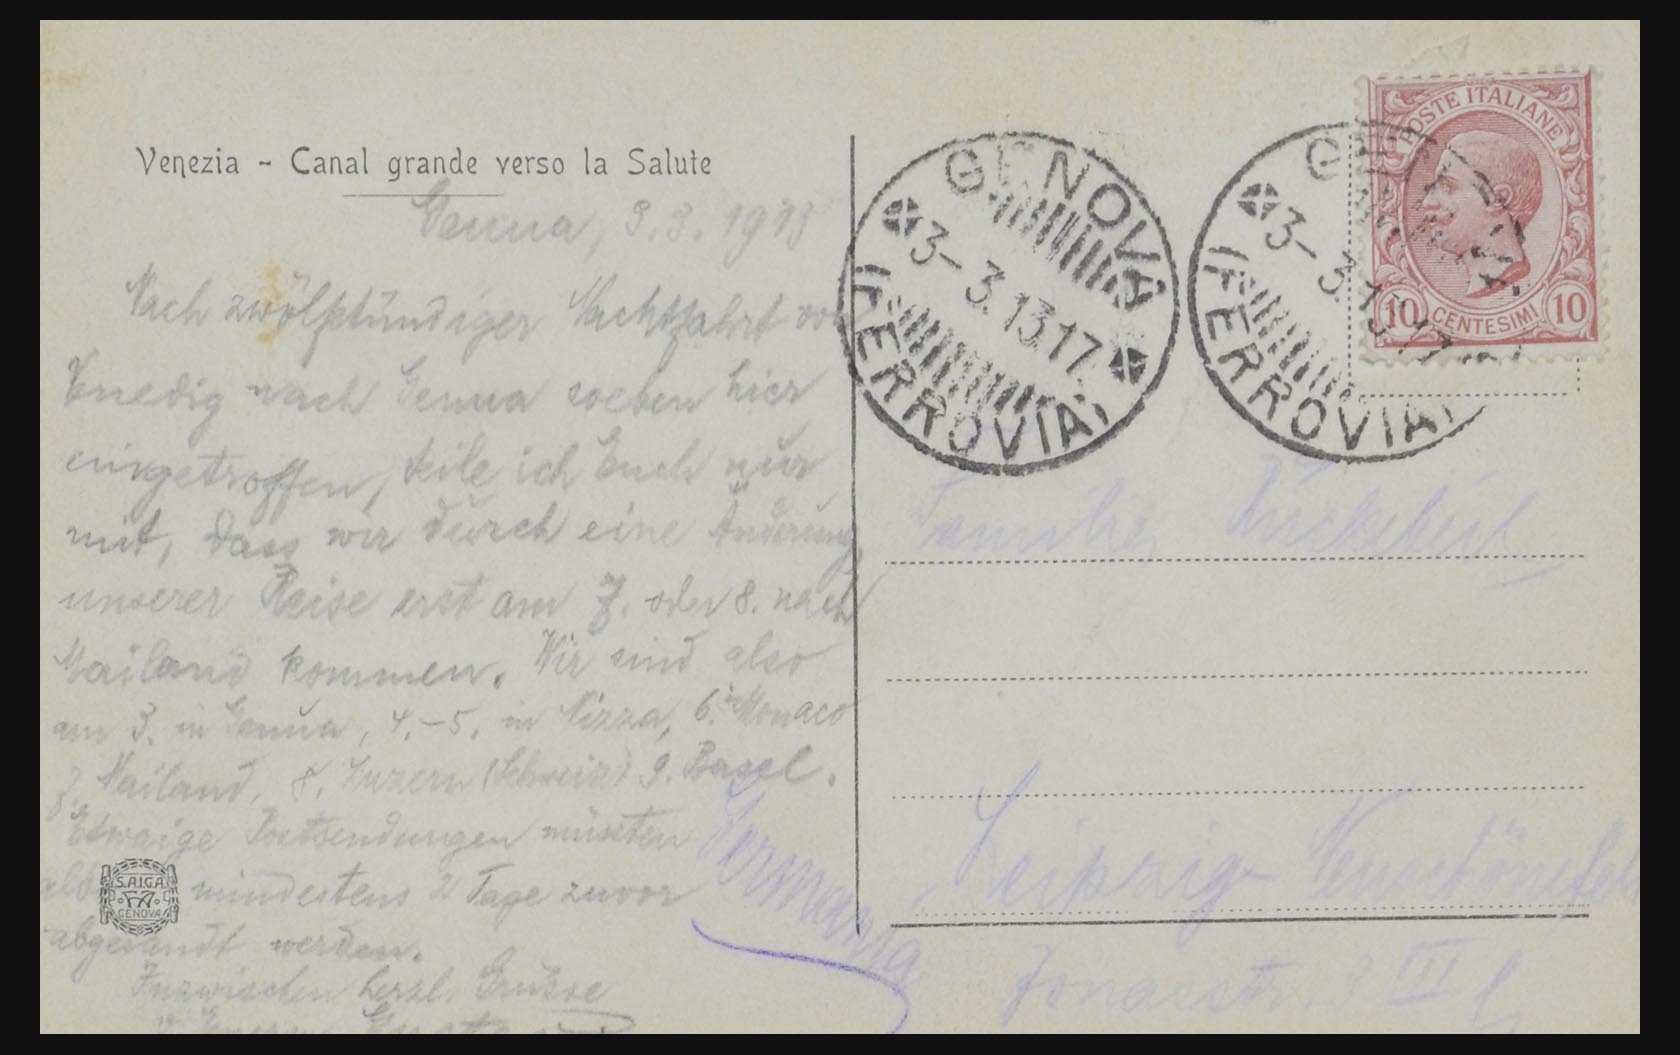 Venezia - Canal grande verso la Salute
Genua, 3.3.1913
Nach zwölfstündiger Nachtfahrt von
Venedig nach Genua soeben hier
eingetroffen, teile ich Euch nur
mit, dass wir durch eine Änderung
unserer Reise erst am 7. oder 8. nach
Mailand kommen. Wir sind also
am 3. in Genua, 4.-5. in Nizza, 6. in Monaco
7. Mailand, 8. Luzern (Schweiz) 9. Basel.
Etwaige Postsendungen müssten
also mindestens 2 Tage zuvor
abgesandt werden.
Inzwischen herzl. Grüsse
S.A.I.G.A.
GENOVA
GENOVA
3-3.13.17
(FERROVIA)
GENOVA
3-3.13.17
(FERROVIA)
POSTE ITALIANE
10 CENTESIMI 10
Familie
Leipzig-Neuschönefeld
Jonasstr. 3 III
Germania